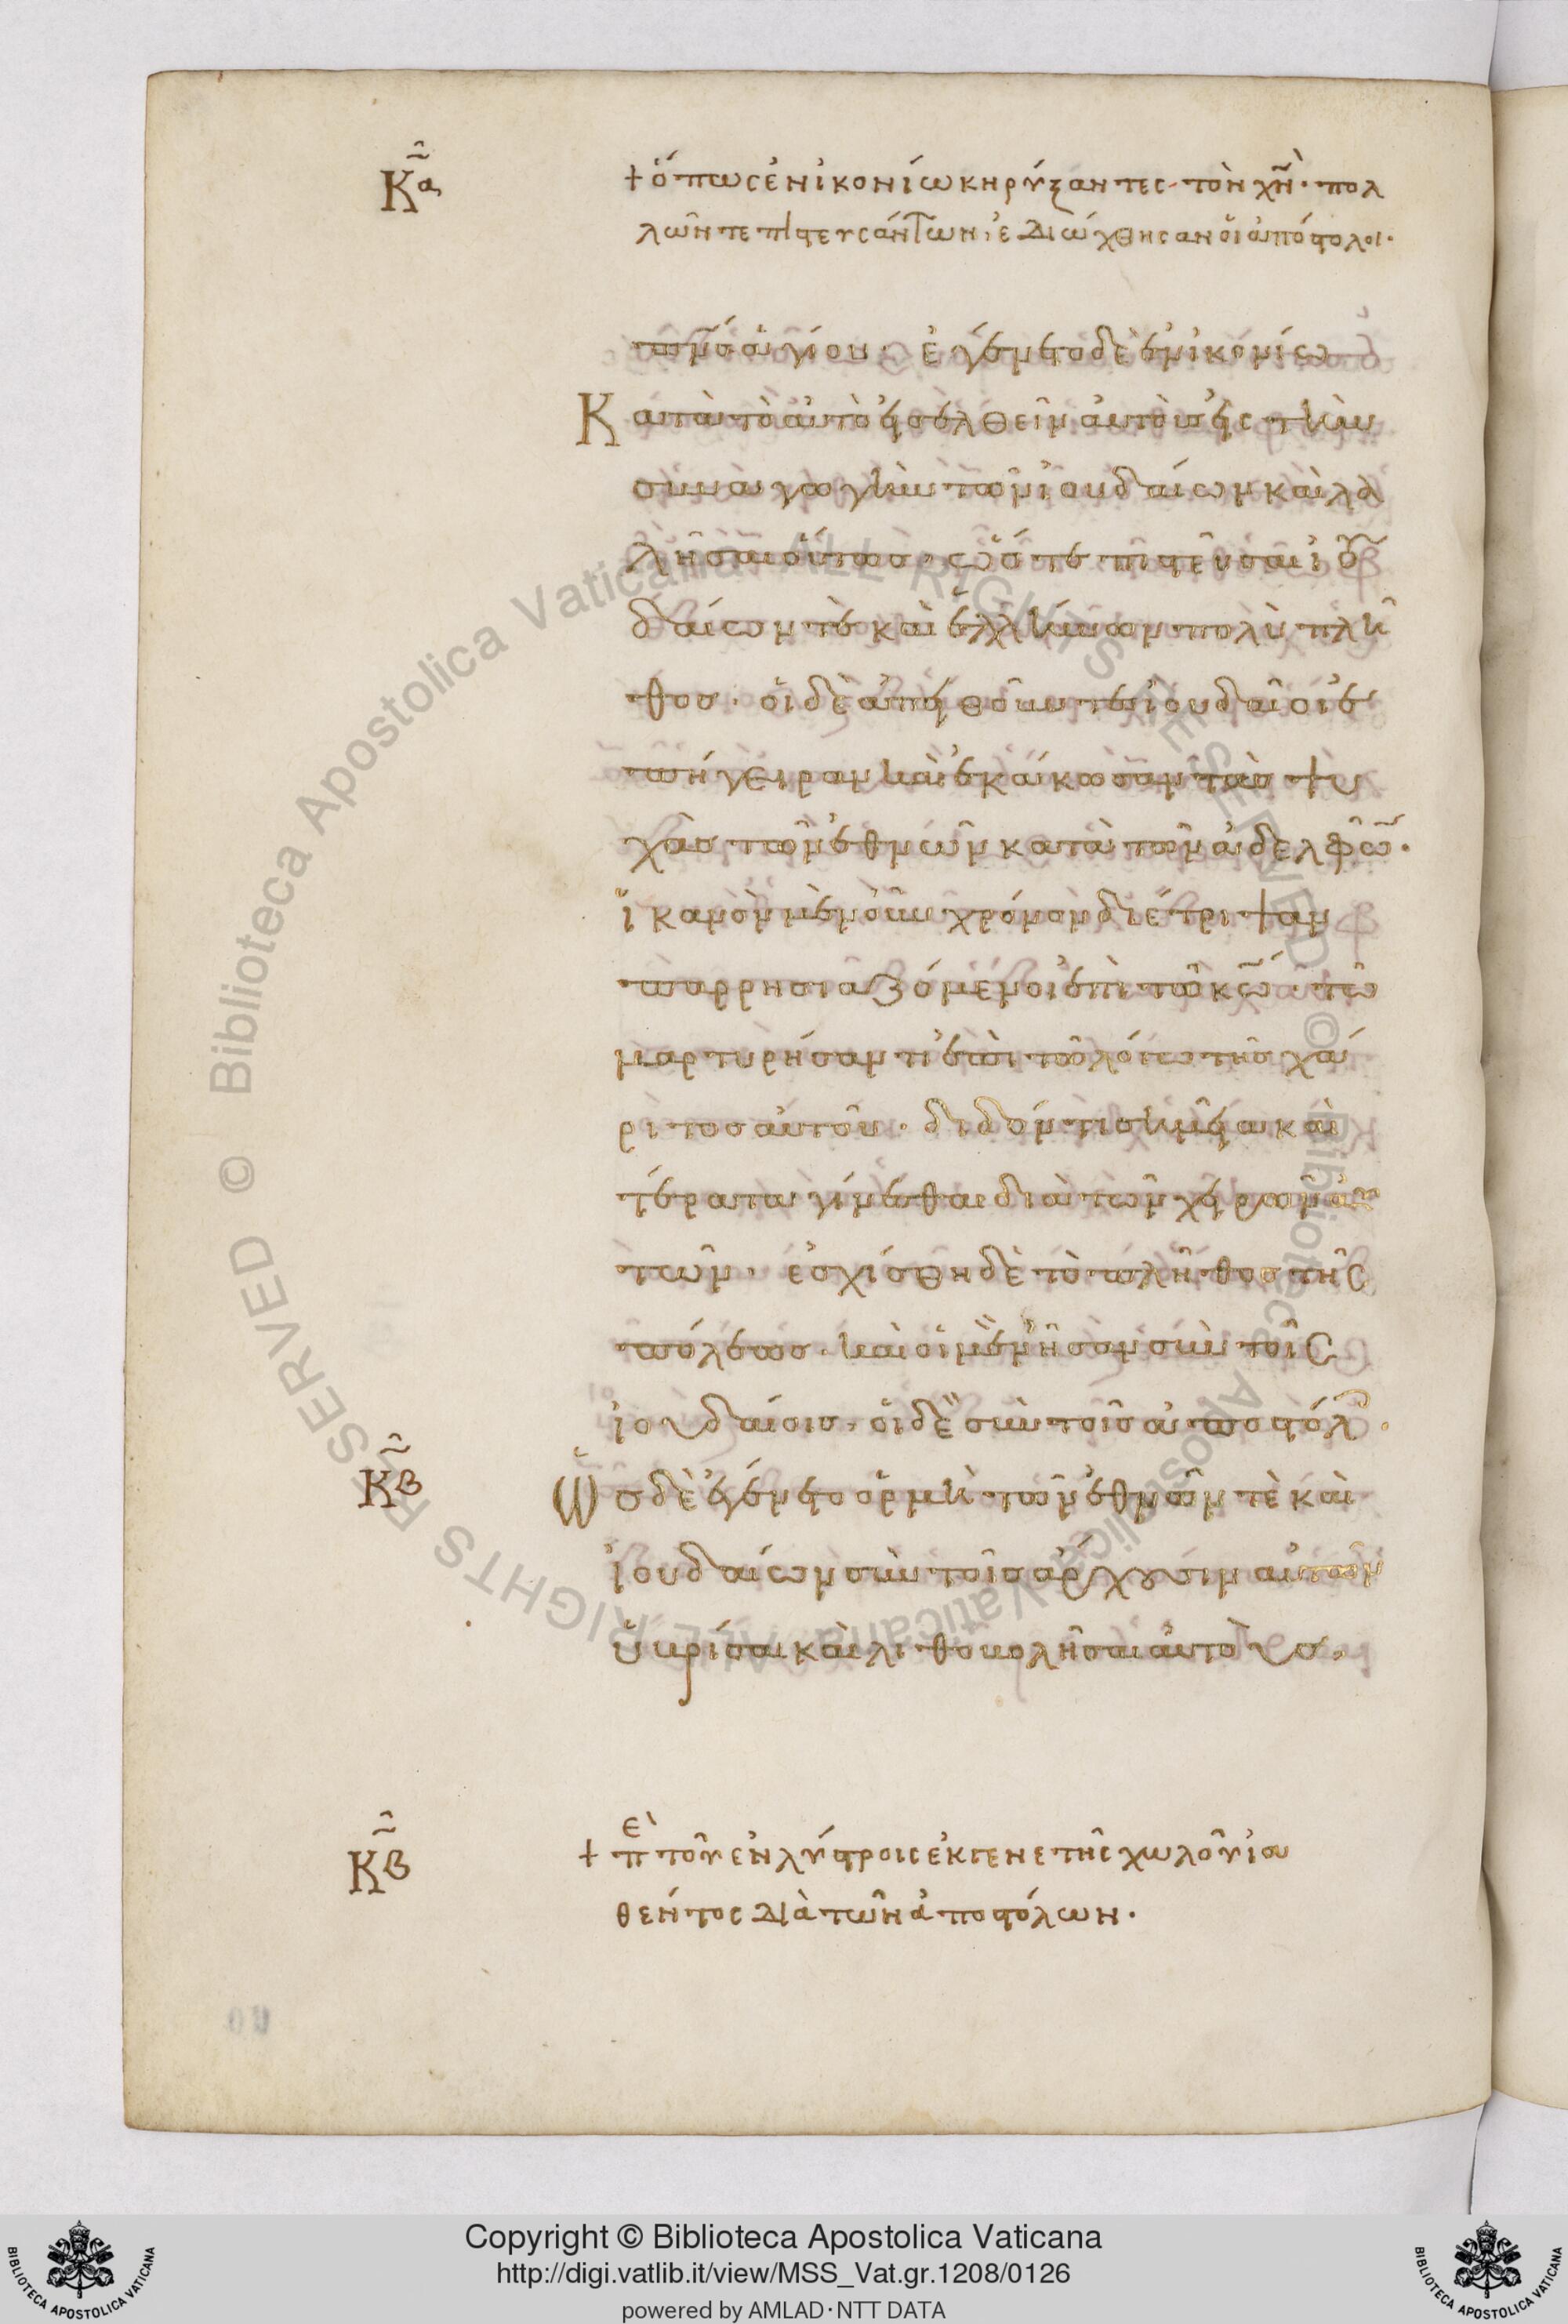 Κα
+ ὅπως ἐν ἰκονίω κηρύξαντες τὸν χν̃· πολ
λῶν τε πιστευσάντων, ἐδιώχθησαν οἱ ἀπόστολοι·
πνσ ἁγίου· ἐγένετο δὲ ἐν ἰκονίω
Κατὰ τὸ αὐτὸ εἰσελθεῖν αὐτοὺς εἰς τὴν
συναγωγὴν τῶν ἰουδαίων καὶ λα
λῆσαι οὕτως· ὥστε πιστεῦσαι ἰου
δαίων τὲ καὶ ἑλλήνων πολὺ πλῆ
θος· οἱ δὲ ἀπειθοῦντες ἰουδαῖοι ἐ
πήγειραν καὶ ἐκάκωσαν τὰς ψυ
χὰς τῶν ἐθνῶν κατὰ τῶν ἀδελφῶ·
ἱκανὸν μὲν οὖν χρόνον διέτριψαν
παρρησιαζόμενοι ἐπὶ τῶ κω̃· τῶ
μαρτυρήσαντι ἐπὶ τῶ λόγω τῆς χά
ριτος αὐτοῦ· διδόντι σημεῖα καὶ
τέρατα γίνεσθαι διὰ τῶν χειρῶν αὐ
τῶν· ἐσχίσθη δὲ τὸ πλῆθος τῆς
πόλεως· καὶ οἱ μὲν ἦσαν σὺν τοῖς
ἰουδαίοις· οἱ δὲ σὺν τοῖς ἀποστόλ·
Κβ
Ὡς δὲ ἐγένετο ὁρμὴ τῶν ἐθνῶν τὲ καὶ
ἰουδαίων σὺν τοῖς ἄρχουσιν αὐτῶν
ὑβρίσαι καὶ λιθοβολῆσαι αὐτοὺς,
Κβ
+ πὲ τοῦ ἐν λύστροις ἐκ γενετῆς χωλοῦ ἰα
θέντος διὰ τῶν ἀποστόλων·
© Biblioteca Apostolica Vaticana ALL RIGHTS RESERVED © Biblioteca Apostolica Vaticana ALL RIGHTS RESERVED
Copyright © Biblioteca Apostolica Vaticana
http://digi.vatlib.it/view/MSS_Vat.gr.1208/0126
powered by AMLAD·NTT DATA
BIBLIOTECA APOSTOLICA VATICANA
BIBLIOTECA APOSTOLICA VATICANA